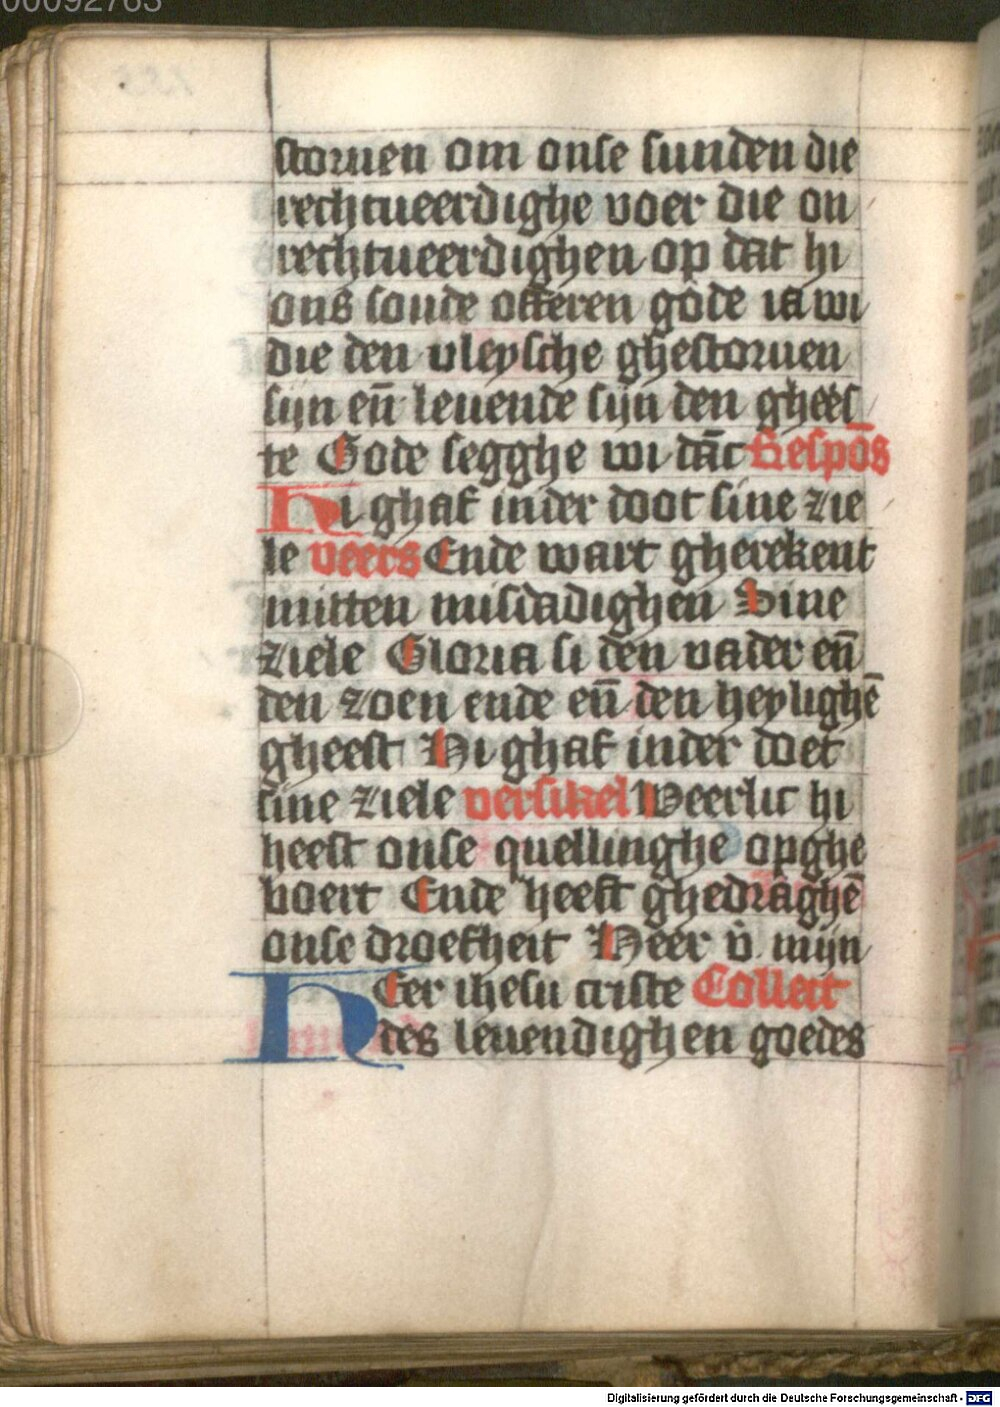 00092763
storuen om onse sunden die
rechtueerdighe voer die on
rechtueerdighen op dat hi
ons soude offeren gode ia wi
die den vleysche ghestoruen
sijn eñ leuende sijn den ghees
te Gode segghe wi dāc Respōs
Hi ghaf inder doot sine zie
le veers Ende wart gherekent
mitten misdadighen Sine
ziele Gloria si den vader eñ
den zoen ende eñ den heylighē
gheest Hi ghaf inder doet
sine ziele versikel Weerlic hi
heeft onse quellinghe opghe
boert Ende heeft ghedraghē
onse droefheit Heer v̄ mijn
HEer ihesu criste Collect
des leuendighen goedes
Digitalisierung gefördert durch die Deutsche Forschungsgemeinschaft - DFG